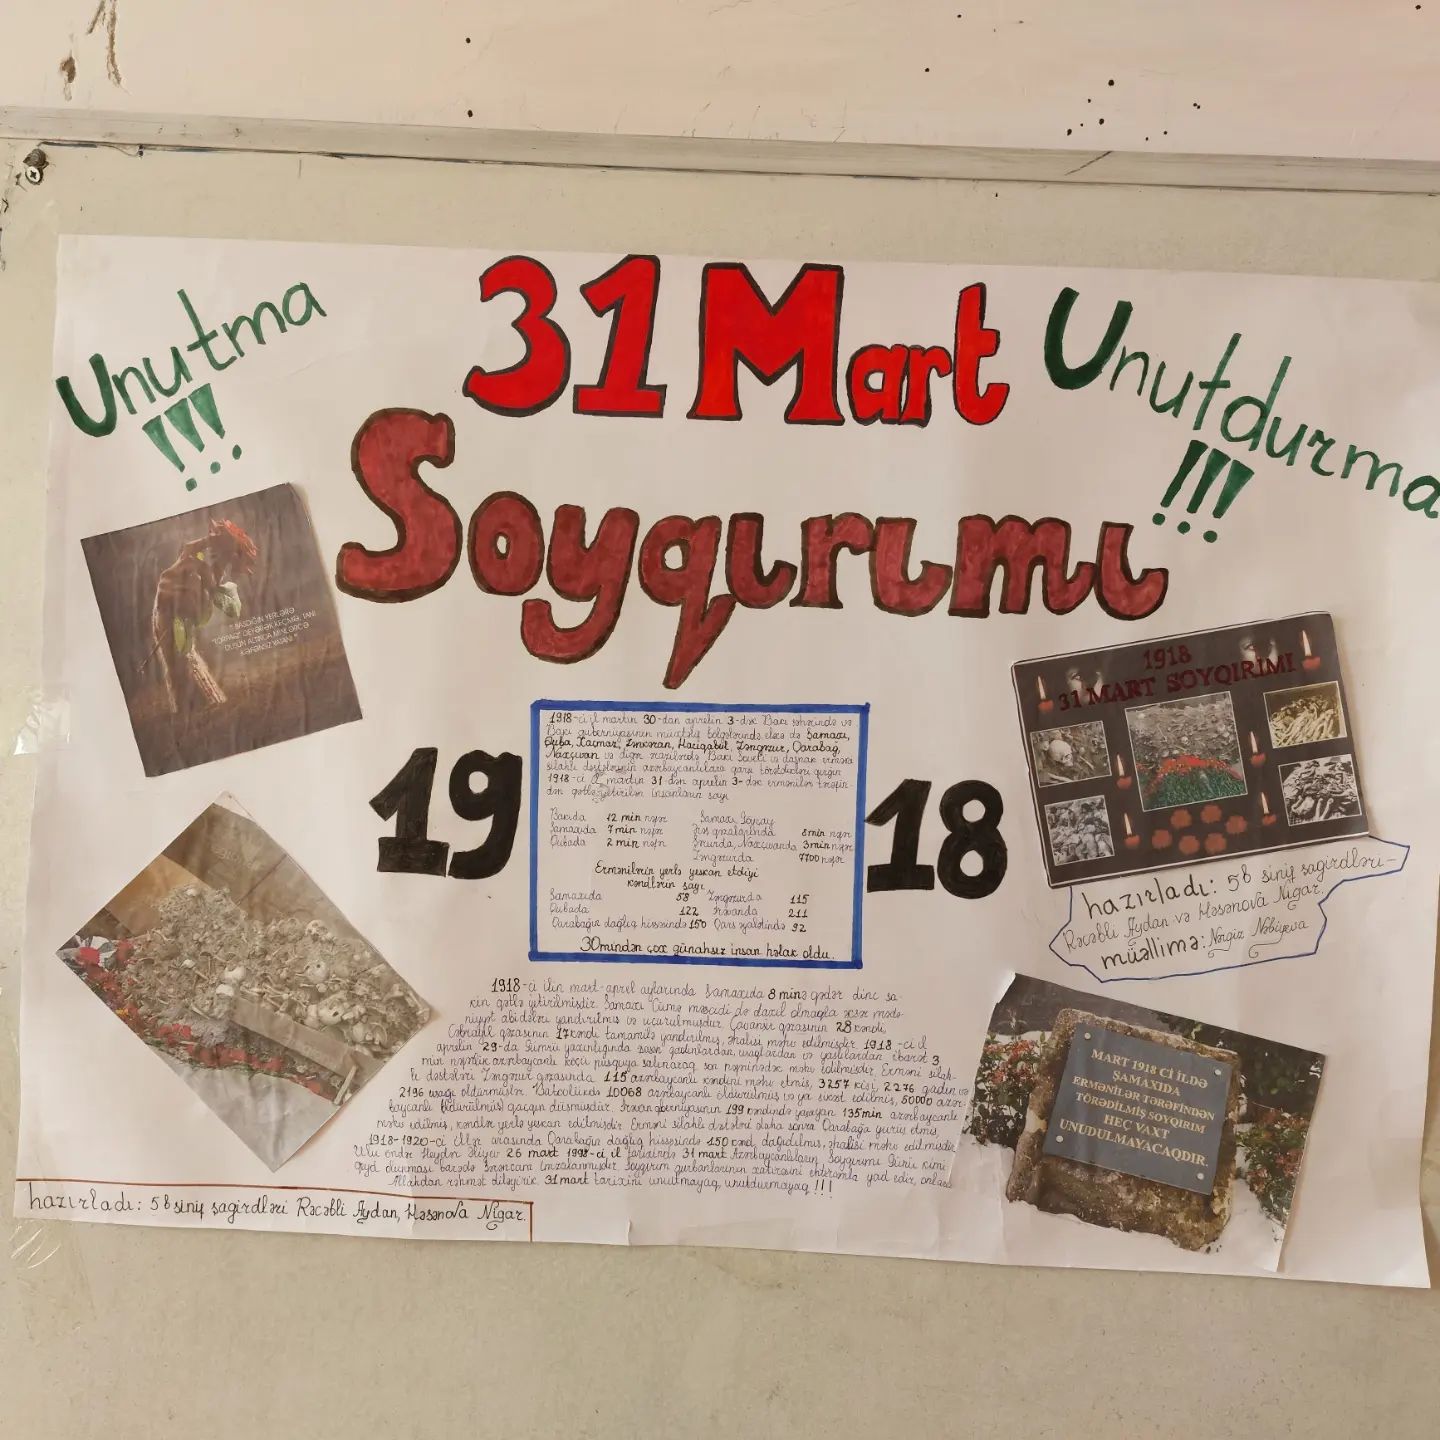 31 Mart
Unutma
!!!
Unutdurma
!!!
Soyqırımı
" BASDIĞIN YERLƏRƏ
"TORPAQ" DEYƏRƏK KEÇMƏ, TANI
DÜŞÜN ALTINDA MİNLƏRCƏ
KƏFƏNSİZ YATANI "
1918
31 MART SOYQIRIMI
19
18
1918-ci il martın 30-dan aprelin 3-dək Bakı şəhərində və
Bakı quberniyasının müxtəlif bölgələrində, eləcə də Şamaxı,
Quba, Xaçmaz, Lənkəran, Hacıqabul, Zəngəzur, Qarabağ,
Naxçıvan və digər ərazilərdə Bakı Soveti və daşnak erməni
silahlı dəstələrinin azərbaycanlılara qarşı törətdikləri qırğın
1918-ci il martın 31 dən aprelin 3-dək ermənilər tərəfin-
dən qətlə yetirilən insanların sayı
Bakıda 12 min nəfər
Şamaxıda 7 min nəfər
Qubada 2 min nəfər
Şamaxı, Göyçay
8 min nəfər
Naxçıvanda 3 min nəfər
Zəngəzurda 7700 nəfər
Ermənilərin yerlə yeksan etdiyi
kəndlərin sayı
Şamaxıda 58 Zəngəzurda 115
Qubada 122 İrəvanda 211
Qarabağın dağlıq hissəsində 150 Qars əyalətində 92
30 mindən çox günahsız insan həlak oldu.
hazırladı: 5b sinif şagirdləri-
Rəcəbli Aydan və Həsənova Nigar.
müəllimə: Nərgiz Nəbiyeva
1918-ci ilin mart-aprel aylarında Şamaxıda 8 minə qədər dinc sa-
kin qətlə yetirilmişdir. Şamaxı Cümə məscidi də daxil olmaqla əksər mədə-
niyyət abidələri yandırılmış və uçurulmuşdur. Cavanşir qəzasının 28 kəndi,
Cəbrayıl qəzasının 17 kəndi tamamilə yandırılmış, əhalisi məhv edilmişdir. 1918-ci il
aprelin 29-da Gümrü yaxınlığında əsasən qadınlardan, uşaqlardan və yaşlılardan ibarət 3
min nəfərlik azərbaycanlı köçü pusquya salınaraq son nəfərinədək məhv edilmişdir. Erməni silah-
lı dəstələri Zəngəzur qəzasında 115 azərbaycanlı kəndini məhv etmiş, 3257 kişi, 2276 qadın və
2196 uşağı öldürmüşlər. Bütövlükdə 10068 azərbaycanlı öldürülmüş və ya şikəst edilmiş, 50000 azər-
baycanlı qaçqın düşmüşdür. İrəvan quberniyasının 199 kəndində yaşayan 135 min azərbaycanlı
məhv edilmiş, kəndlər yerlə yeksan edilmişdir. Erməni silahlı dəstələri daha sonra Qarabağa yürüş etmiş,
1918-1920-ci illər arasında Qarabağın dağlıq hissəsində 150 kənd dağıdılmış, əhalisi məhv edilmişdir.
Ulu öndər Heydər Əliyev 26 mart 1998-ci il tarixində 31 mart Azərbaycanlıların Soyqırımı Günü kimi
qeyd olunması barədə Fərman imzalanmışdır. Soyqırım qurbanlarının xatirəsini ehtiramla yad edir, onlara
Allahdan rəhmət diləyirik. 31 mart tarixini unutmayaq, unutdurmayaq !!!
MART 1918 Cİ İLDƏ
ŞAMAXIDA
ERMƏNİLƏR TƏRƏFİNDƏN
TÖRƏDİLMİŞ SOYQIRIM
HEÇ VAXT
UNUDULMAYACAQDIR.
hazırladı: 5b sinif şagirdləri Rəcəbli Aydan, Həsənova Nigar.